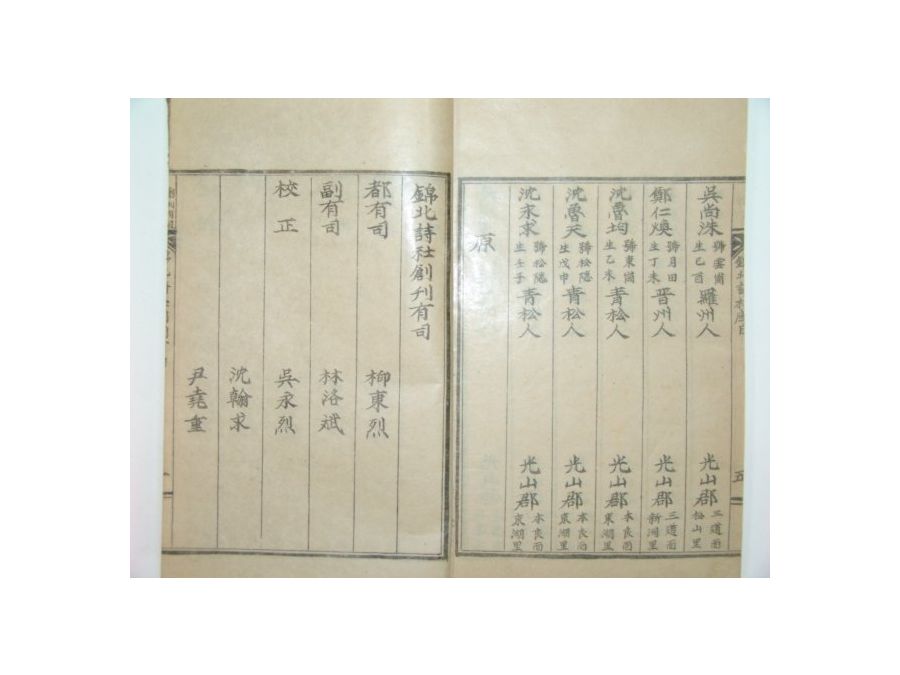 吳尚洙 號雲圃 生己酉 羅州人 光山郡 三道面 松山里
鄭仁煥 號月田 生丁未 晋州人 光山郡 三道面 新湖里
沈魯均 號東圃 生乙未 靑松人 光山郡 本良面 東湖里
沈魯天 號松隱 生戊申 靑松人 光山郡 本良面 東湖里
沈求 生壬子 靑松人 光山郡 本良面 東湖里
原
五
錦北詩社創刋有司
都有司 柳東烈
副有司 林洛斌
校正 吳永烈
沈翰求
尹堯重